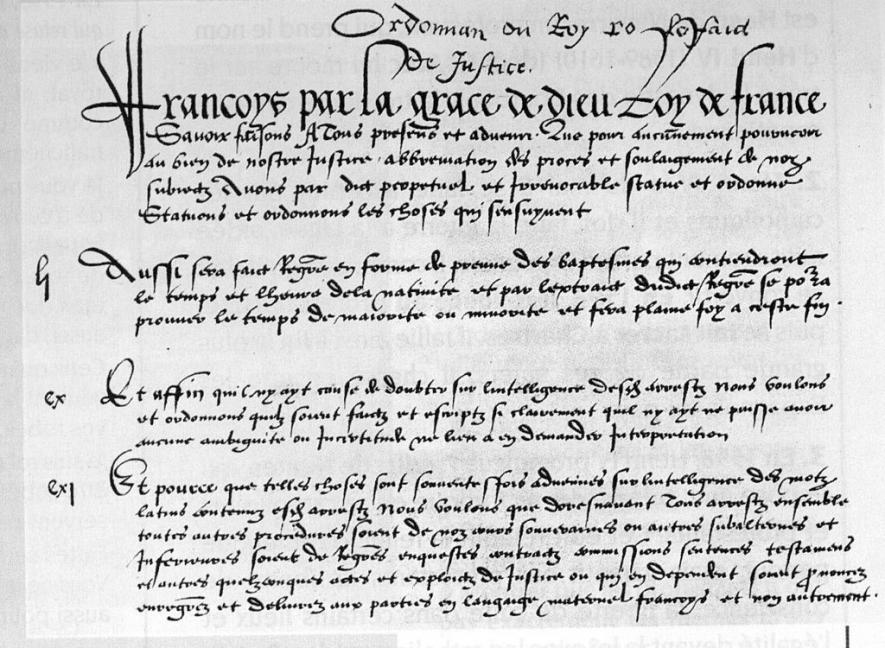 Ordonnan du Roy
de Justice.
Francoys par la grace de dieu Roy de france
Savoir faisons A Tous presens et advenir Que pour aucunement pourveoir
au bien de nostre Justice abbreviation des proces et soulaigement de noz
subiectz Avons par edict perpetuel et Irrevocable statue et ordonne
Statuons et ordonnons les choses qui sensuyvent
Aussi sera faict Regre en forme de preuve des baptesmes qui contiendront
le temps et lheure dela nativite et par lextraict dudict Regre se pora
prouver le temps de maiorite ou minorite et fera plaine foy a ceste fin .
cx Et affin quil ny ayt cause de doubter sur lintelligence desdz arrestz Nous voulons
et ordonnons quilz soient faictz et escriptz si clerement quil ny ayt ne puisse avoir
aucune ambiguite ou Incertitude ne lieu a en demander Interpretation
cxj Et pource que telles choses sont souventesfois advenues sur lintelligence des motz
latins contenuz esdz arrestz Nous voulons que doresnavant Tous arrestz ensemble
toutes autres procedures soient de noz cours souveraines ou autres subalternes et
Inferieures soient de Regres enquestes contractz commissions sentences testamens
et autres quelzconques actes et exploictz de Justice ou qui en dependent soient prononcez
enregrez et delivrez aux parties en langaige maternel francoys et non autrement .